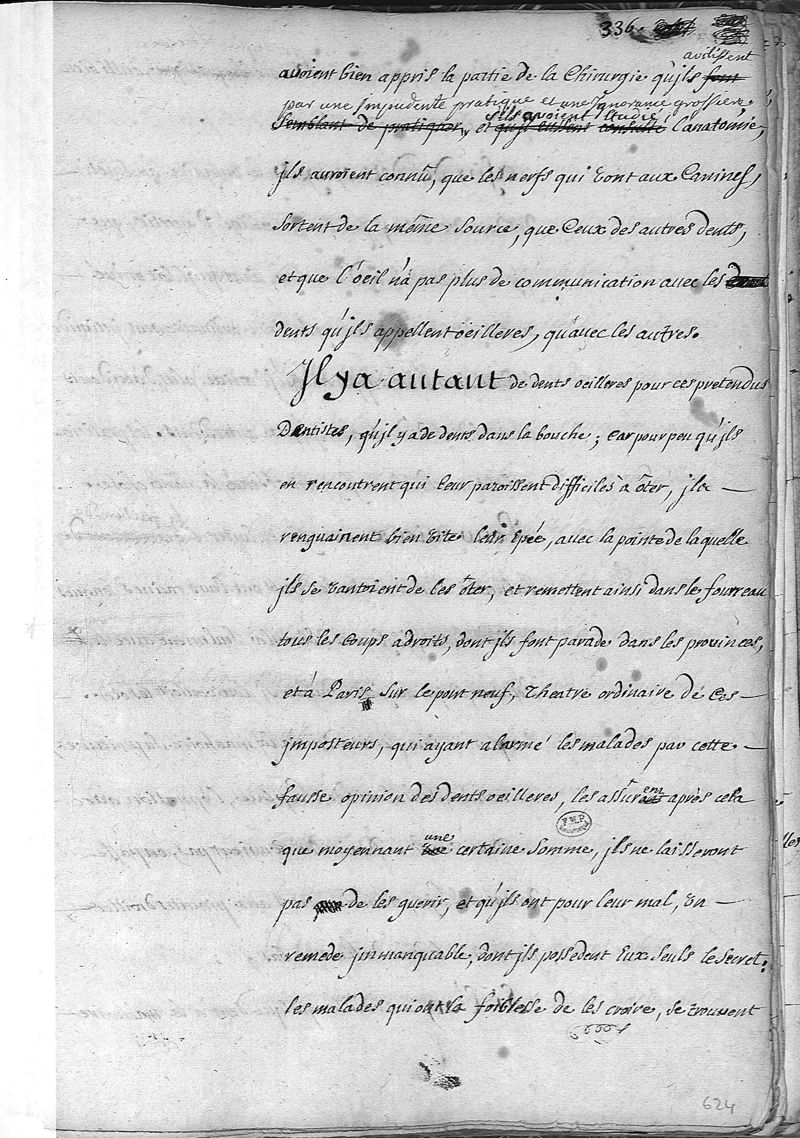 336
avilissent
avoient bien appris la partie de la Chirurgie qu'ils font
par une impudente pratique et une ignorance grossiere,
s'ils avoient Etudié
Semblant de pratiquer, et qu'ils eussent consulté l'anatomie,
ils auroient connû, que les nerfs qui vont aux Canines,
sortent de la même source, que Ceux des autres dents,
et que l'oeil n'a pas plus de communication avec les
dents qu'ils appellent oeilleres, qu'avec les autres.
Il y a autant de dents oeilleres pour ces pretendus
Dentistes, qu'il y a de dents dans la bouche; car pour peu qu'ils
en rencontrent qui leur paroissent difficiles à ôter, ils
renguainent bien vite leur Epée, avec la pointe de laquelle
ils se vantoient de les ôter, et remettent ainsi dans le fourreau
tous les coups adroits, dont ils font parade dans les provinces,
et à Paris sur le pont neuf, Theatre ordinaire de ces
imposteurs, qui ayant alarmé les malades par cette
fausse opinion des dents oeilleres, les assurent après cela
que moyennant une certaine somme, ils ne laisseront
pas de les guerir, et qu'ils ont pour leur mal, un
remede immanquable, dont ils possedent Eux seuls le secret.
les malades qui ont la foiblesse de les croire, se trouvent
624